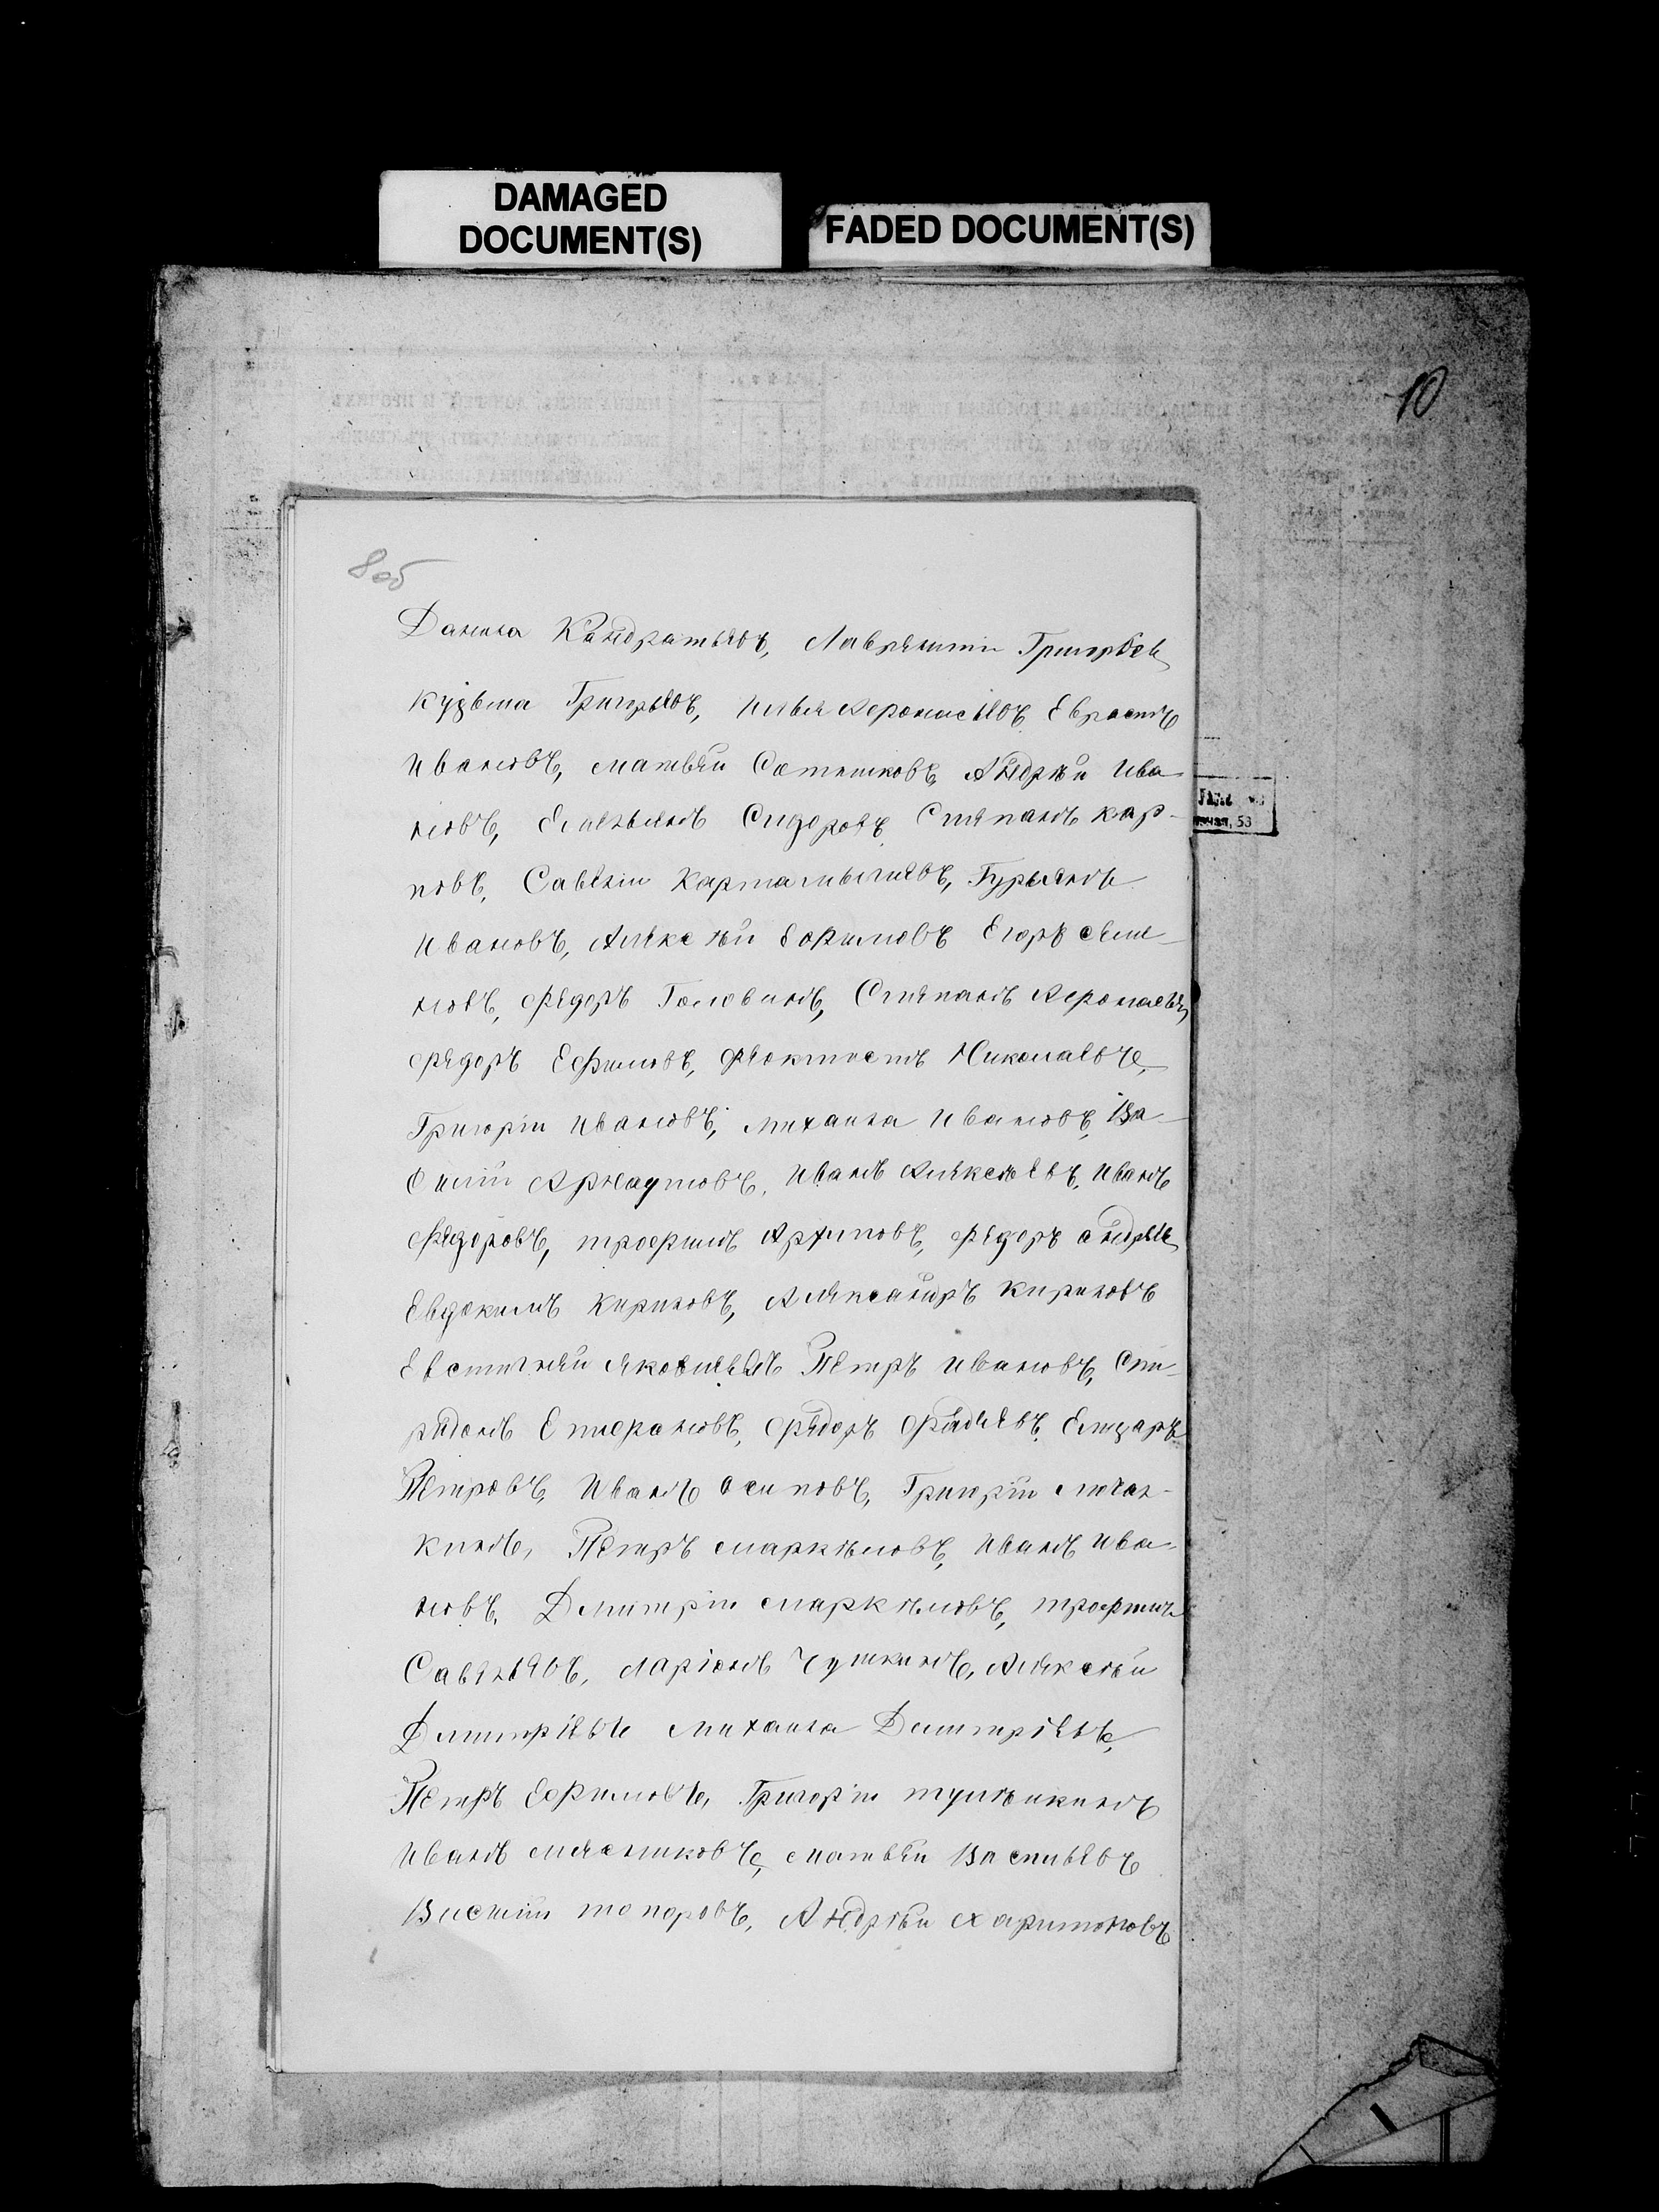 DAMAGED
DOCUMENT(S)
FADED DOCUMENT(S)
10
8 об
Данила Кандратьявъ, Лаврянтiи Григорьев
кузьма Григорьявъ, илья Афонасьявъ Еврасит
ивановъ, матвяй Сотниковъ, Андрѣй ива-
новъ, Емельянъ Сидоровъ, Стяпанъ кар-
повъ, Савялiи Картамышявъ, Гурьянъ
ивановъ, Аляксѣй Ефимовъ Егоръ сяме-
новъ, фядоръ Головинъ, Стяпанъ Афонасьев
фядоръ Ефимовъ, фяоктистъ Николаявъ,
Григорiи ивановъ, михаила ивановъ, Ва-
силiй Арнаутовъ, иванъ Аляксѣявъ, иванъ
фядоровъ, трофимъ Архиповъ, фядоръ андрея
Евдокимъ Кириловъ, Аляксандръ кириловъ
Евстигняй Петръ ивановъ, Спи-
ридонъ Епифановъ, фядоръ фадяявъ,
Петровъ, иванъ Осиповъ, Григорiи мочал-
кинъ, Петръ маркѣловъ, иванъ ива-
новъ, Дмитрiи маркѣловъ, трофимъ
Савяльявъ, ларiонъ Чушкинъ, Аляксѣй
Дмитрiявъ михаила Дмитрiявъ,
Петръ Ефимовъ, Григорiи
иванъ мясниковъ, матвяй Васильявъ
Василiй топоровъ, Андрѣй харитоновъ
53